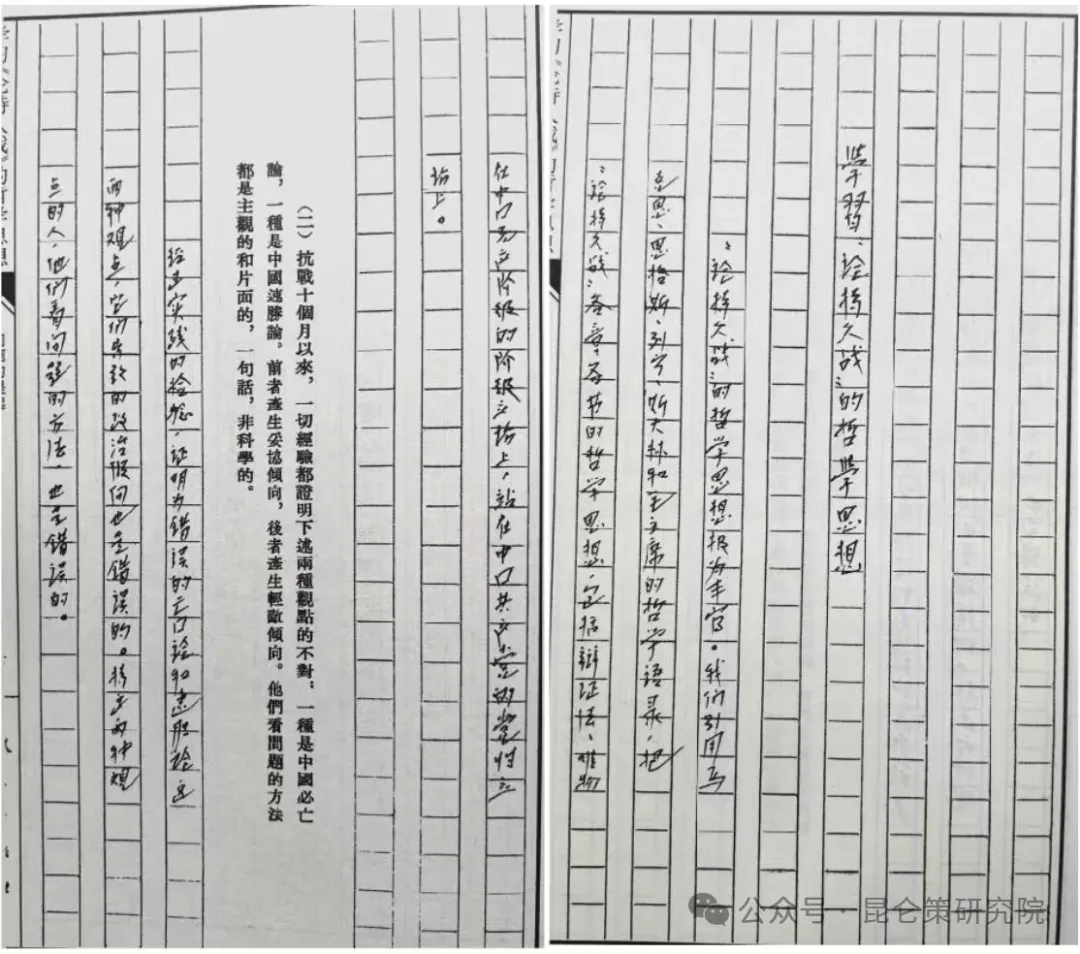 學習《论持久战》的哲學思想
《论持久战》的哲学思想极为丰富。我们引用马
克思、恩格斯、列宁、斯大林和毛主席的哲学语录，把
《论持久战》各章各节的哲学思想，包括辩证法、唯物
在中国无产阶级的阶级立场上，站在中国共产党的党性立
场上。
（二）抗戰十個月以來，一切經驗都證明下述兩種觀點的不對：一種是中國必亡
論，一種是中國速勝論。前者產生妥協傾向，後者產生輕敵傾向。他們看問題的方法
都是主觀的和片面的，一句話，非科學的。
经过实践的检验，证明为错误的亡国论和速胜论这
两种观点，它们导致的政治倾向也是错误的。持这两种观
点的人，他们看问题的方法，也是错误的。
公众号·昆仑策研究院